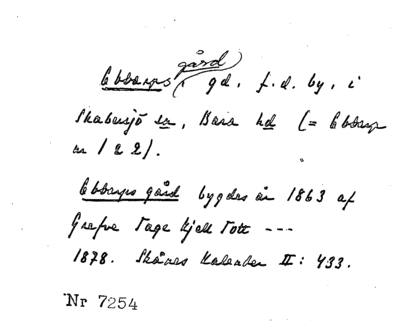 gård
Ebbarps, gd, f.d. by, i
Skabersjö sn, Bara hd (= Ebbarp
nr 1 & 2).
Ebbarps gård bygdes år 1863 af
Grefve Tage Kjell Tott ---
1878. Skånes Kalender II: 433.
Nr 7254